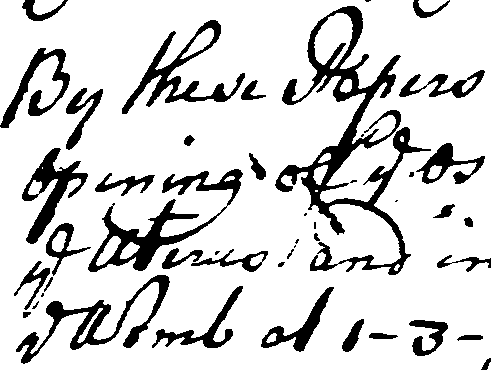 By these Papers
opening of ye Os
ye Uterus and in
ye Womb at 1-3-